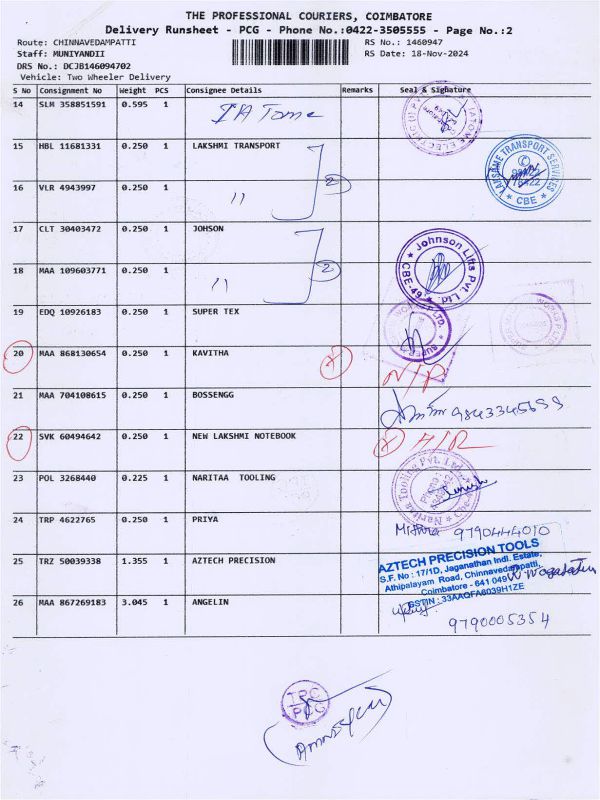 THE PROFESSIONAL COURIERS, COIMBATORE
Delivery Runsheet - PCG - Phone No.:0422-3505555 - Page No.:2
Route: CHINNAVEDAMPATTI RS No.: 1460947
Staff: MUNIYANDII RS Date: 18-Nov-2024
DRS No.: DCJB146094702
Vehicle: Two Wheeler Delivery
S No Consignment No Weight PCS Consignee Details Remarks Seal & Signature
14 SLM 358851591 0.595 1
15 HBL 11681331 0.250 1 LAKSHMI TRANSPORT
16 VLR 4943997 0.250 1 " 2
17 CLT 30403472 0.250 1 JOHSON
18 MAA 109603771 0.250 1 " 2
Johnson Lifts Pvt. Ltd.
CBE-49
19 EDQ 10926183 0.250 1 SUPER TEX
20 MAA 868130654 0.250 1 KAVITHA
21 MAA 704108615 0.250 1 BOSSENGG
22 SVK 60494642 0.250 1 NEW LAKSHMI NOTEBOOK
23 POL 3268440 0.225 1 NARITAA TOOLING
24 TRP 4622765 0.250 1 PRIYA Mithra 9790444010
25 TRZ 50039338 1.355 1 AZTECH PRECISION
AZTECH PRECISION TOOLS
S.F. No : 17/1D, Jaganathan Indl. Estate,
Athipalayam Road, Chinnavedampatti,
Coimbatore - 641 049
GSTIN : 33AAQFA6039H1ZE
26 MAA 867269183 3.045 1 ANGELIN
9790005354
TPC